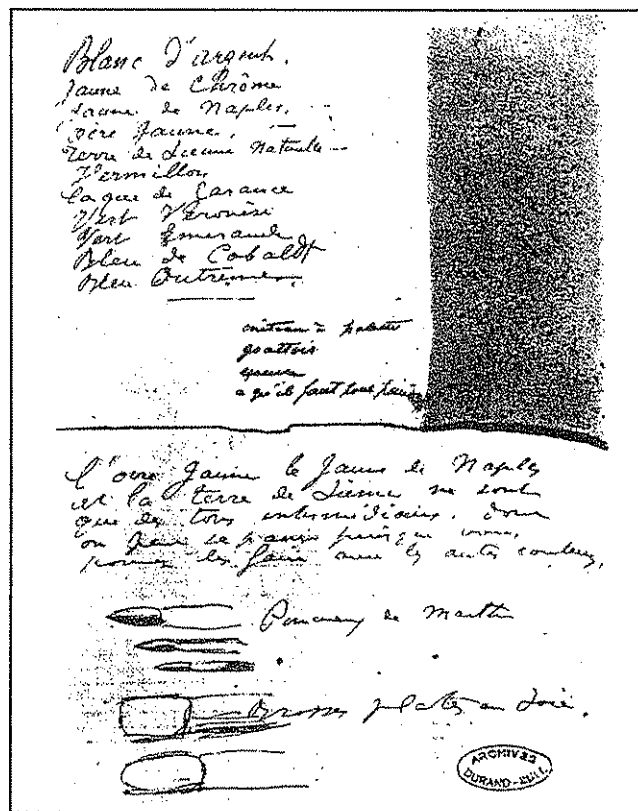 Blanc d'argent.
Jaune de Chrôme
Jaune de Naples.
Ocre Jaune.
Terre de Sienne Naturelle
Vermillon
Laque de Garance
Vert Véronèse
Vert Emeraude
Bleu de Cobaldt
Bleu Outremer
couteau à palette
grattoir
essence
ce qu'il faut pour peindre
L'ocre Jaune le Jaune de Naples
et la terre de Sienne ne sont
que des tons intermédiaires. dont
on peut se passer puisque vous
pouvez les faire avec les autres couleurs.
Pinceaux de Martre
Brosses plates en soie.
ARCHIVES
DURAND-RUEL